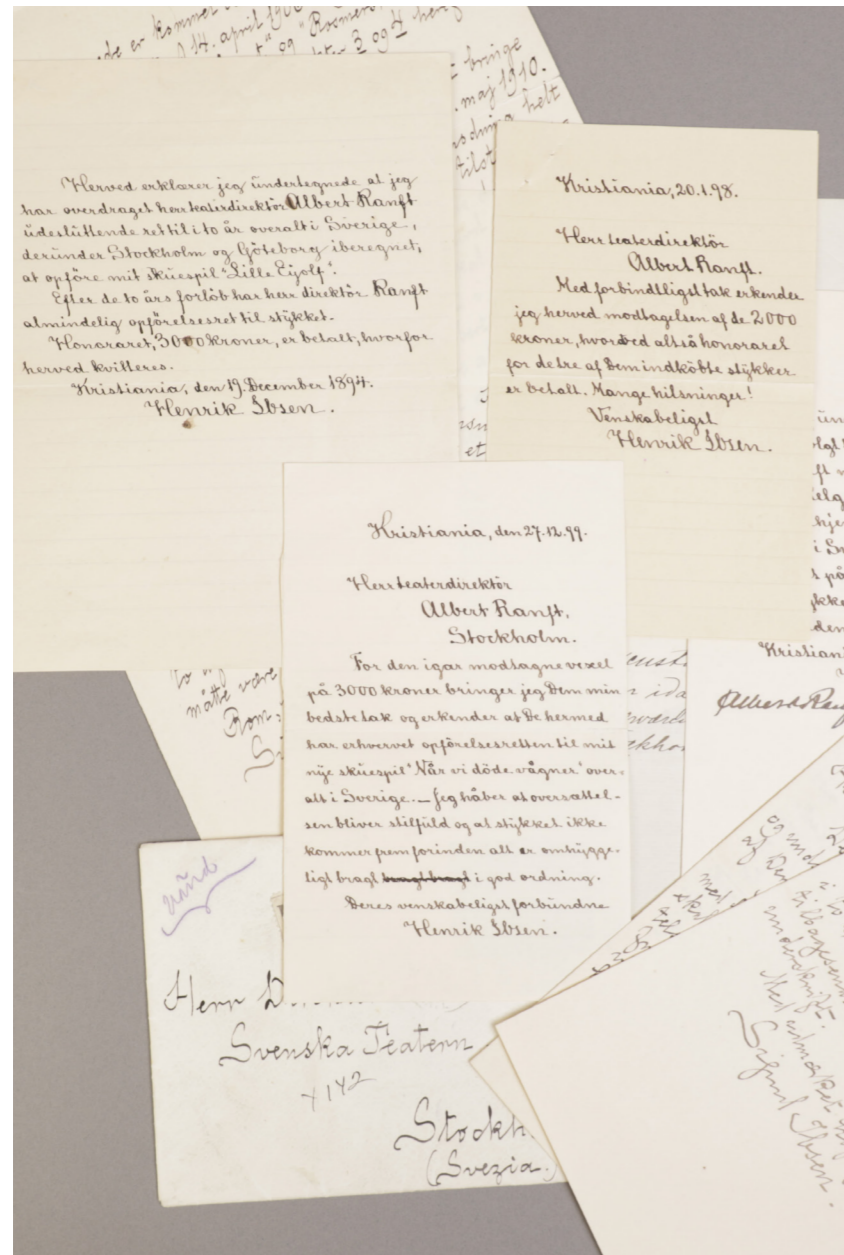 de er kommet
14. april
og "Rosmers
3 og 4
bringe
maj 1910.
helt
Herved erklærer jeg ündertegnede at jeg
har overdraget herr teaterdirektör Albert Ranft
üdeslüttende ret til i to år overalt i Sverige,
deründer Stockholm og Göteborg iberegnet,
at opföre mit skuespil "Lille Eyolf".
Efter de to års forlöb har herr direktör Ranft
almindelig opförelsesret til stÿkket.
Honoraret, 3000 kroner, er betalt, hvorfor
herved kvitteres.
Kristiania, den 19. December 1894.
Henrik Ibsen.
Kristiania, 20.1.98.
Herr teaterdirektör
Albert Ranft.
Med forbindtligst tak erkender
jeg herved modtagelsen af de 2000
kroner, hvorved altså honoraret
for de tre af Dem indköbte stÿkker
er betalt. Mange hilsninger!
Venskabeligst
Henrik Ibsen.
Kristiania, den 27.12.99.
Herr teaterdirektör
Albert Ranft,
Stockholm.
For den igår modtagne vexel
på 3000 kroner bringer jeg Dem min
bedste tak og erkender at De hermed
har erhvervet opförelsesretten til mit
nÿe skuespil "Når vi döde vågner" over-
alt i Sverige. – Jeg håber at oversættel-
sen bliver stilfüld og at stÿkket ikke
kommer frem forinden alt er omhÿgge-
ligt bragt bragt bragt i god ordning.
Deres venskabeligst forbundne
Henrik Ibsen.
måtte være
Rom
Kristian
Albert Ran
Herr D
Svenska Teatern
+142
Stockh
(Svezia.)
tilbagesen
underskrift.
Med
Sigurd Ibsen.